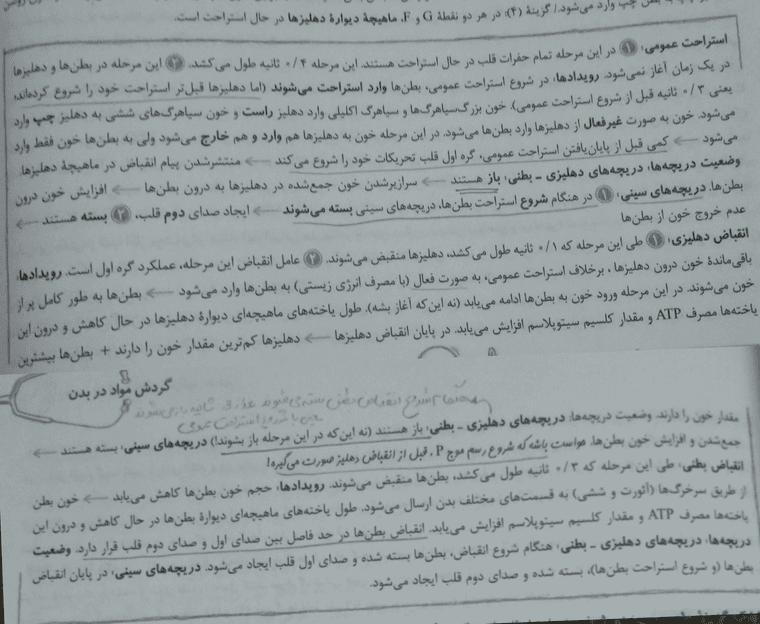 بطن چپ وارد می‌شود./ گزینهٔ (۴): در هر دو نقطهٔ G و F، ماهیچهٔ دیوارهٔ دهلیزها در حال استراحت است.
استراحت عمومی: ۱ در این مرحله تمام حفرات قلب در حال استراحت هستند. این مرحله ۰/۴ ثانیه طول می‌کشد. ۲ این مرحله در بطن‌ها و دهلیزها
در یک زمان آغاز نمی‌شود. رویدادها: در شروع استراحت عمومی، بطن‌ها وارد استراحت می‌شوند (اما دهلیزها قبل‌تر استراحت خود را شروع کرده‌اند،
یعنی ۰/۳ ثانیه قبل از شروع استراحت عمومی). خون بزرگ‌سیاهرگ‌ها و سیاهرگ اکلیلی وارد دهلیز راست و خون سیاهرگ‌های ششی به دهلیز چپ وارد
می‌شود. خون به صورت غیرفعال از دهلیزها وارد بطن‌ها می‌شود. در این مرحله خون به دهلیزها هم وارد و هم خارج می‌شود ولی به بطن‌ها خون فقط وارد
می‌شود ← کمی قبل از پایان‌یافتن استراحت عمومی، گره اول قلب تحریکات خود را شروع می‌کند ← منتشرشدن پیام انقباض در ماهیچهٔ دهلیزها.
وضعیت دریچه‌ها: دریچه‌های دهلیزی ـ بطنی: باز هستند ← سرازیرشدن خون جمع‌شده در دهلیزها به درون بطن‌ها ← افزایش خون درون
بطن‌ها. دریچه‌های سینی: ۱ در هنگام شروع استراحت بطن‌ها، دریچه‌های سینی بسته می‌شوند ← ایجاد صدای دوم قلب، ۲ بسته هستند ←
عدم خروج خون از بطن‌ها
انقباض دهلیزی: ۱ طی این مرحله که ۰/۱ ثانیه طول می‌کشد، دهلیزها منقبض می‌شوند. ۲ عامل انقباض این مرحله، عملکرد گره اول است. رویدادها:
باقی‌ماندهٔ خون درون دهلیزها، برخلاف استراحت عمومی، به صورت فعال (با مصرف انرژی زیستی) به بطن‌ها وارد می‌شود ← بطن‌ها به طور کامل پر از
خون می‌شوند. در این مرحله ورود خون به بطن‌ها ادامه می‌یابد (نه این‌که آغاز بشه). طول یاخته‌های ماهیچه‌ای دیوارهٔ دهلیزها در حال کاهش و درون این
یاخته‌ها مصرف ATP و مقدار کلسیم سیتوپلاسم افزایش می‌یابد. در پایان انقباض دهلیزها ← دهلیزها کم‌ترین مقدار خون را دارند + بطن‌ها بیشترین
گردش مواد در بدن
هنگام شروع انقباض بطنی بسته می‌شوند
شروع استراحت عمومی
مقدار خون را دارند. وضعیت دریچه‌ها: دریچه‌های دهلیزی ـ بطنی: باز هستند (نه این‌که در این مرحله باز بشوند!) دریچه‌های سینی: بسته هستند ←
جمع‌شدن و افزایش خون بطن‌ها. حواست باشه که شروع رسم موج P، قبل از انقباض دهلیز صورت می‌گیره!
انقباض بطنی: طی این مرحله که ۰/۳ ثانیه طول می‌کشد، بطن‌ها منقبض می‌شوند. رویدادها: حجم خون بطن‌ها کاهش می‌یابد ← خون بطن
از طریق سرخرگ‌ها (آئورت و ششی) به قسمت‌های مختلف بدن ارسال می‌شود. طول یاخته‌های ماهیچه‌ای دیوارهٔ بطن‌ها در حال کاهش و درون این
یاخته‌ها مصرف ATP و مقدار کلسیم سیتوپلاسم افزایش می‌یابد. انقباض بطن‌ها در حد فاصل بین صدای اول و صدای دوم قلب قرار دارد. وضعیت
دریچه‌ها: دریچه‌های دهلیزی ـ بطنی: هنگام شروع انقباض، بطن‌ها بسته شده و صدای اول قلب ایجاد می‌شود. دریچه‌های سینی: در پایان انقباض
بطن‌ها (و شروع استراحت بطن‌ها)، بسته شده و صدای دوم قلب ایجاد می‌شود.